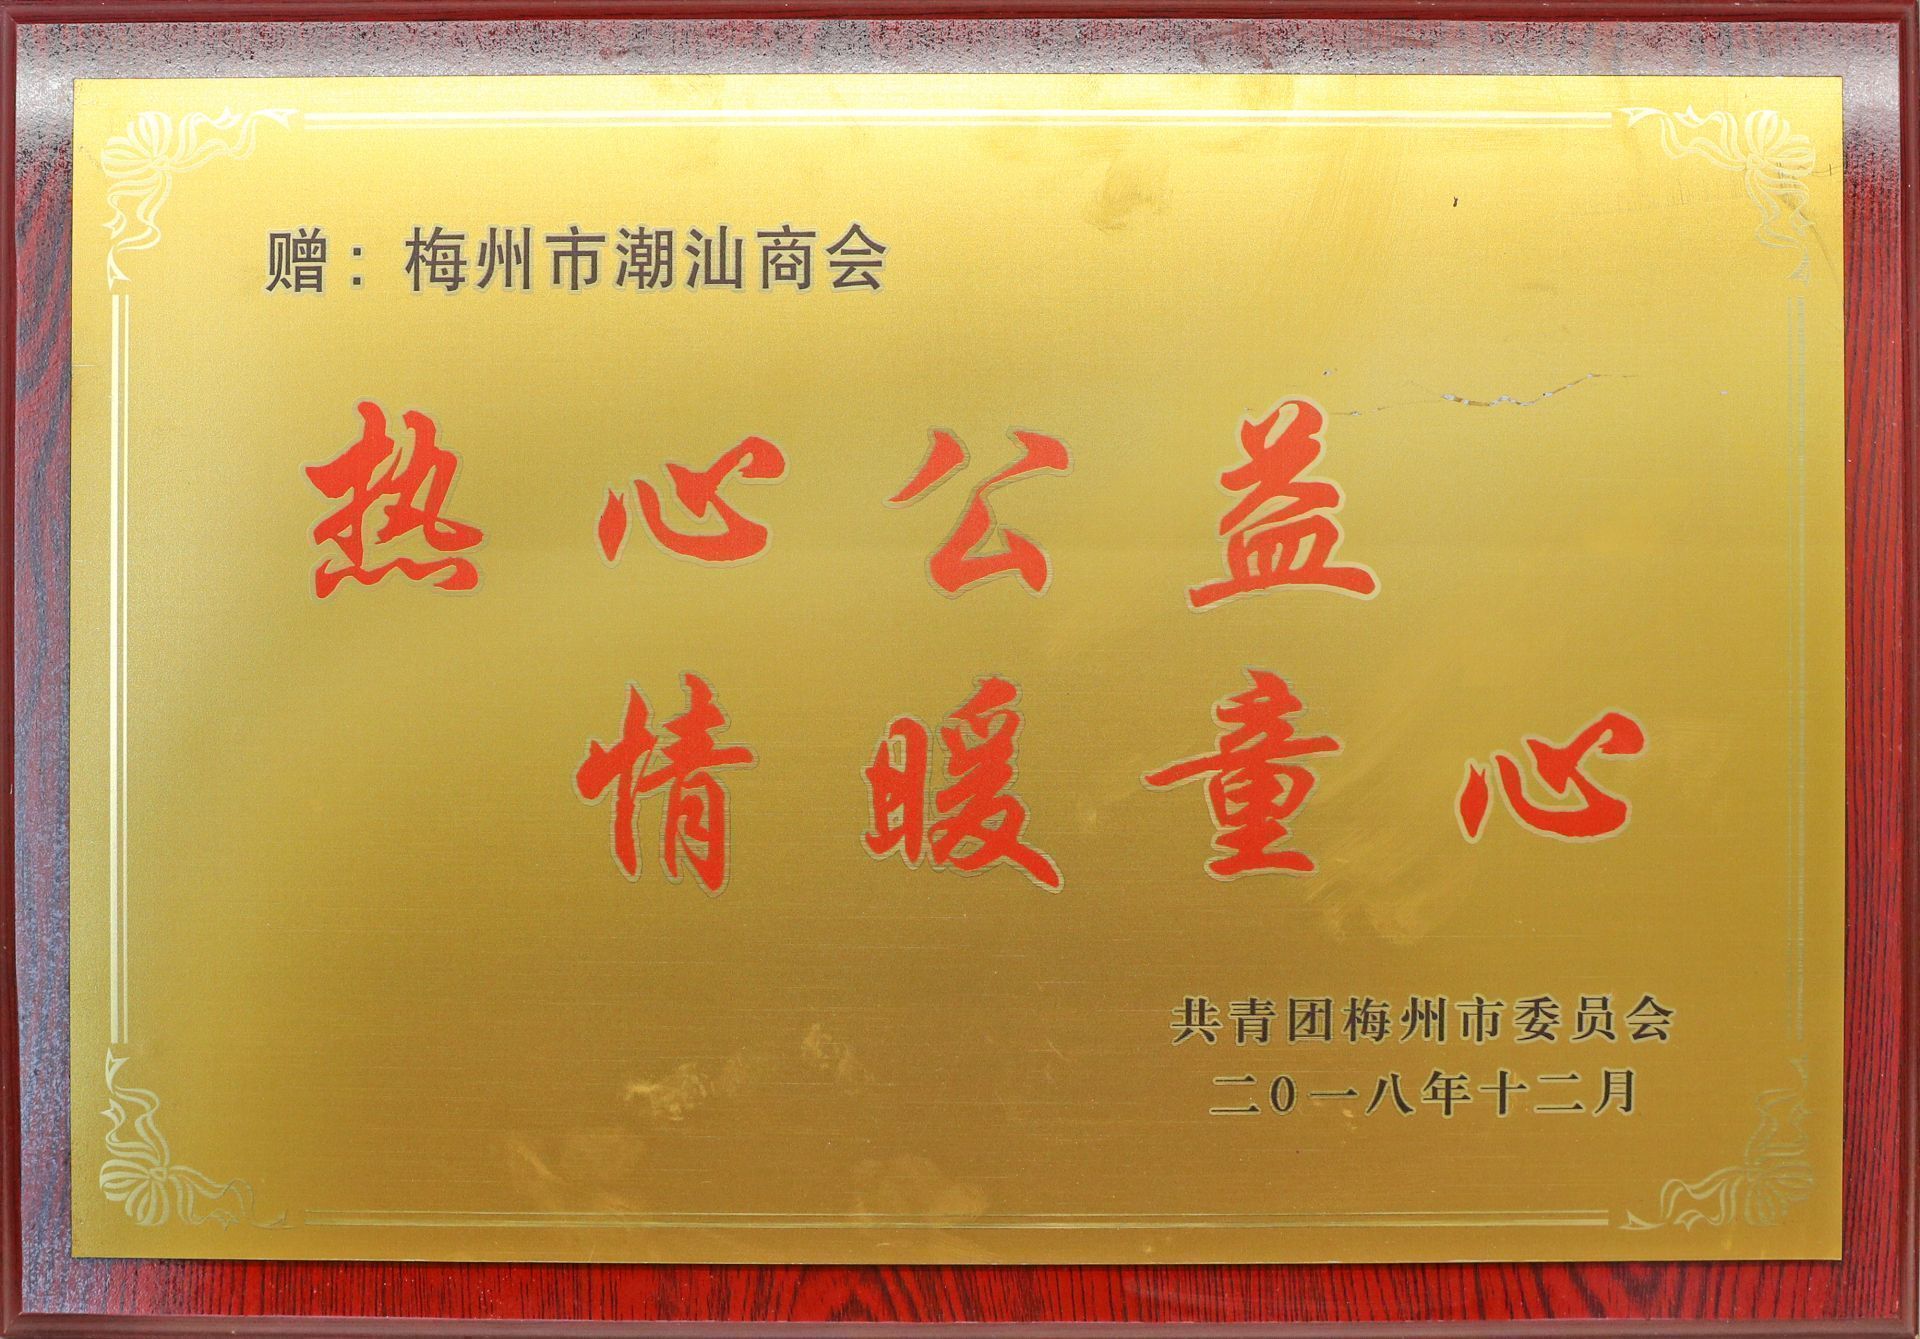 赠：梅州市潮汕商会
热心公益
情暖童心
共青团梅州市委员会
二0一八年十二月